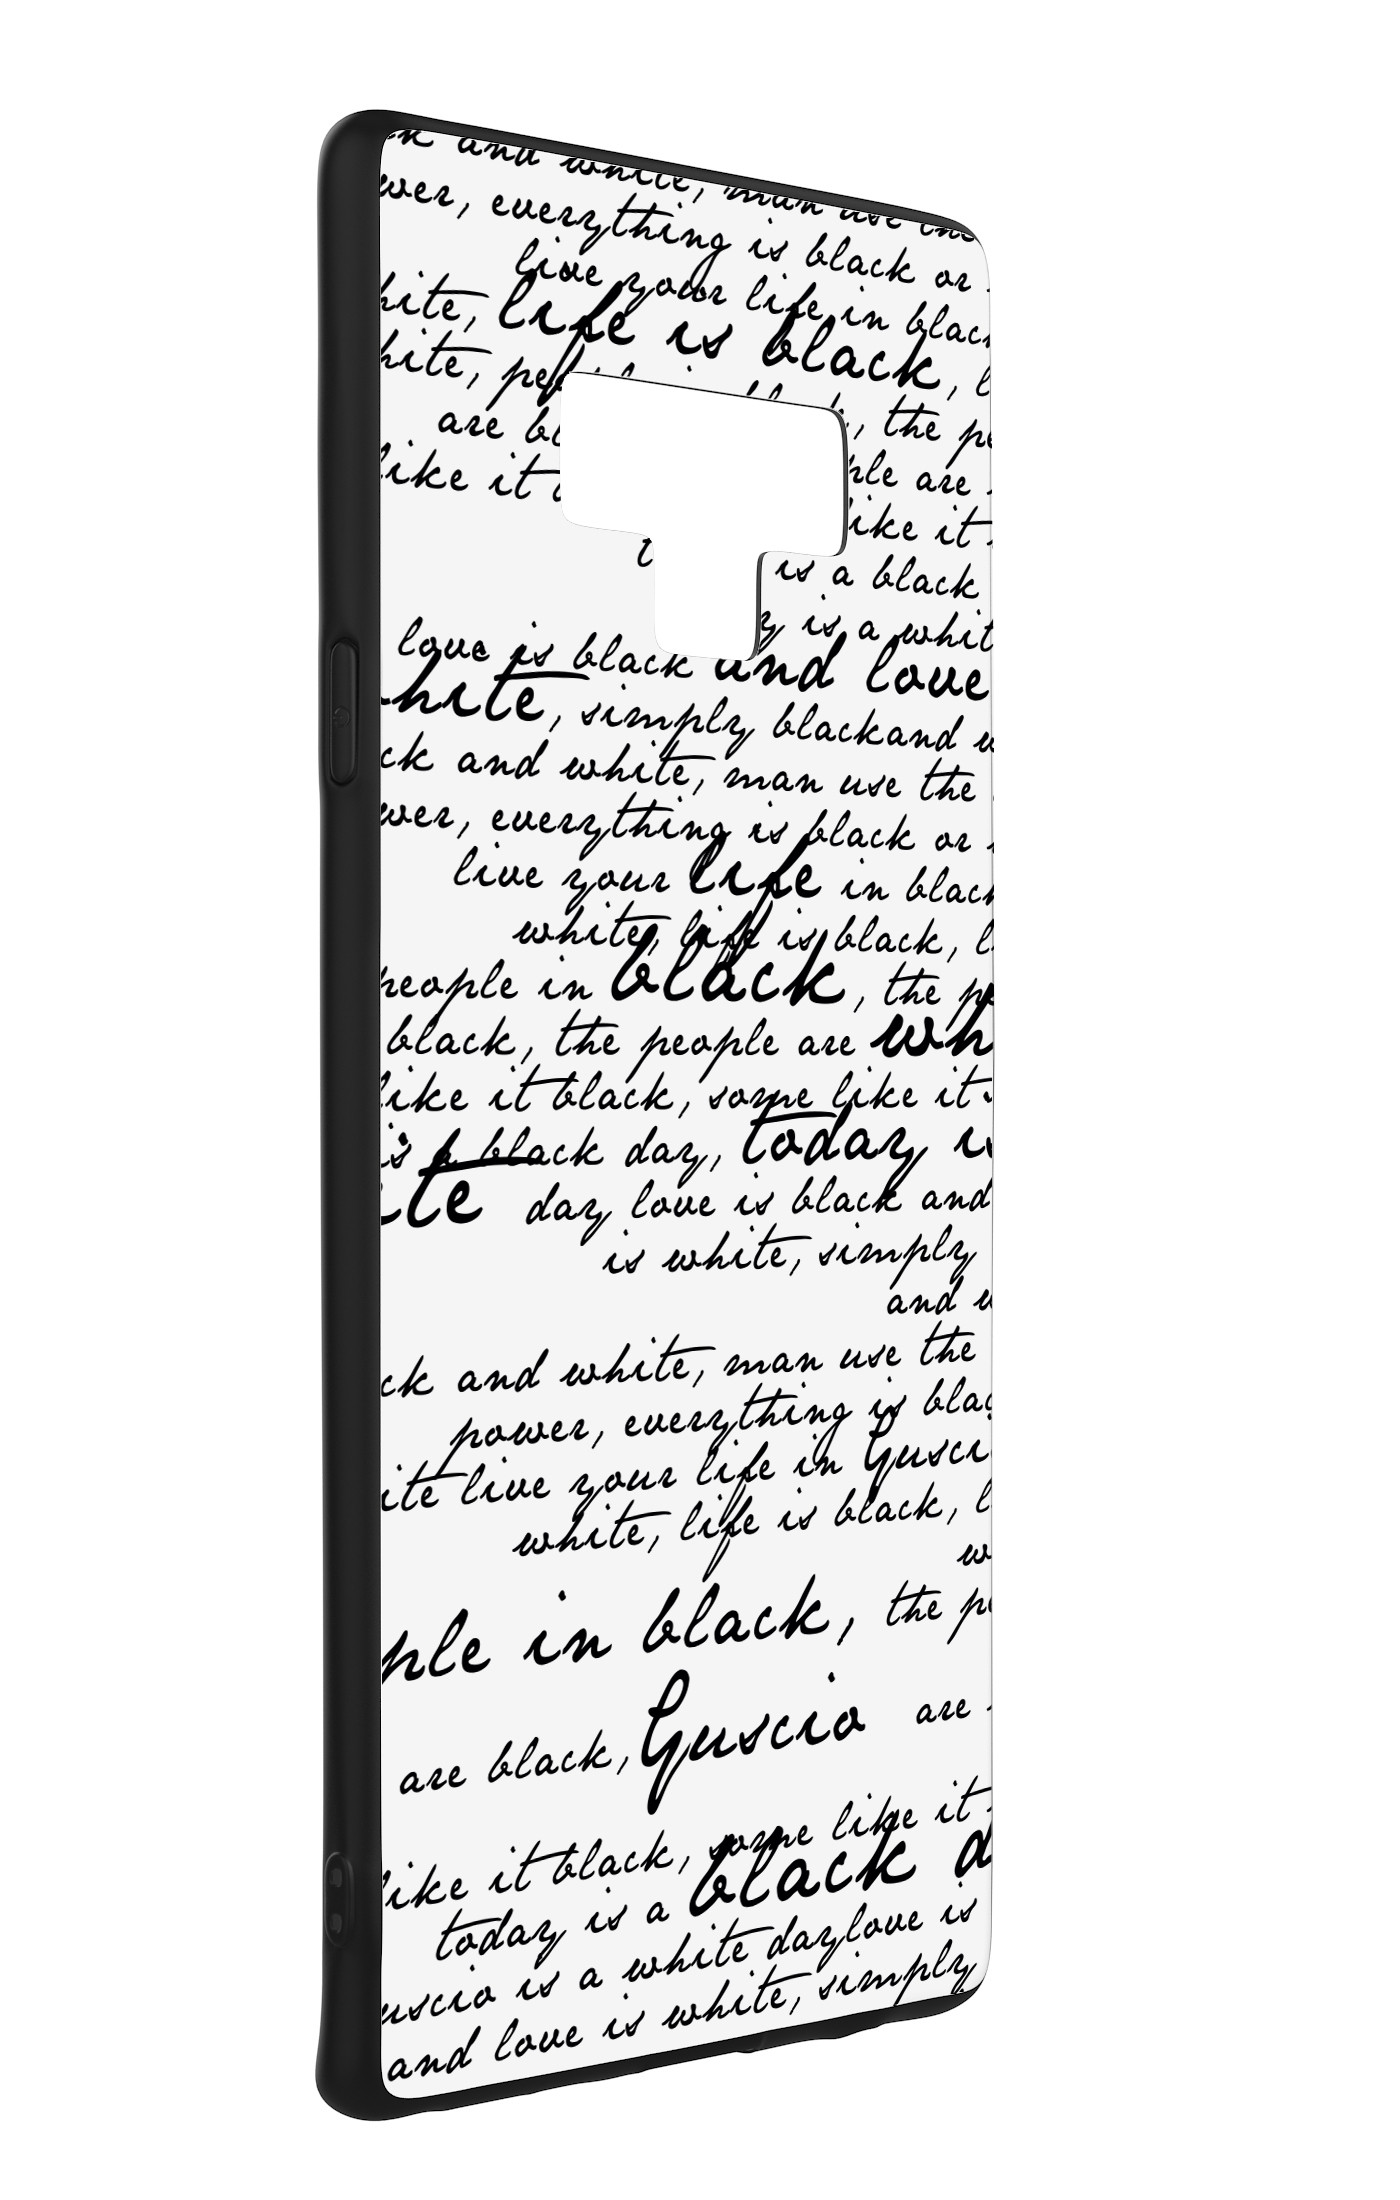 and white, man use the
wer, everything is black or
live your life in black
hite, life is black, l
hite, pe the pe
are bl ple are
like it like it
is a black
is a whit
love is black and love
hite, simply blackand w
ck and white, man use the
wer, everything is black or
live your life in black
white, life is black, l
people in black, the pe
black, the people are wh
like it black, some like it
is a black day, today is
ite day love is black and
is white, simply
and w
ck and white, man use the
power, everything is blac
ite live your life in Gusci
white, life is black, l
w
ple in black, the pe
are black, Guscio are
like it black, some like it
today is a black d
uscio is a white daylove is
and love is white, simply